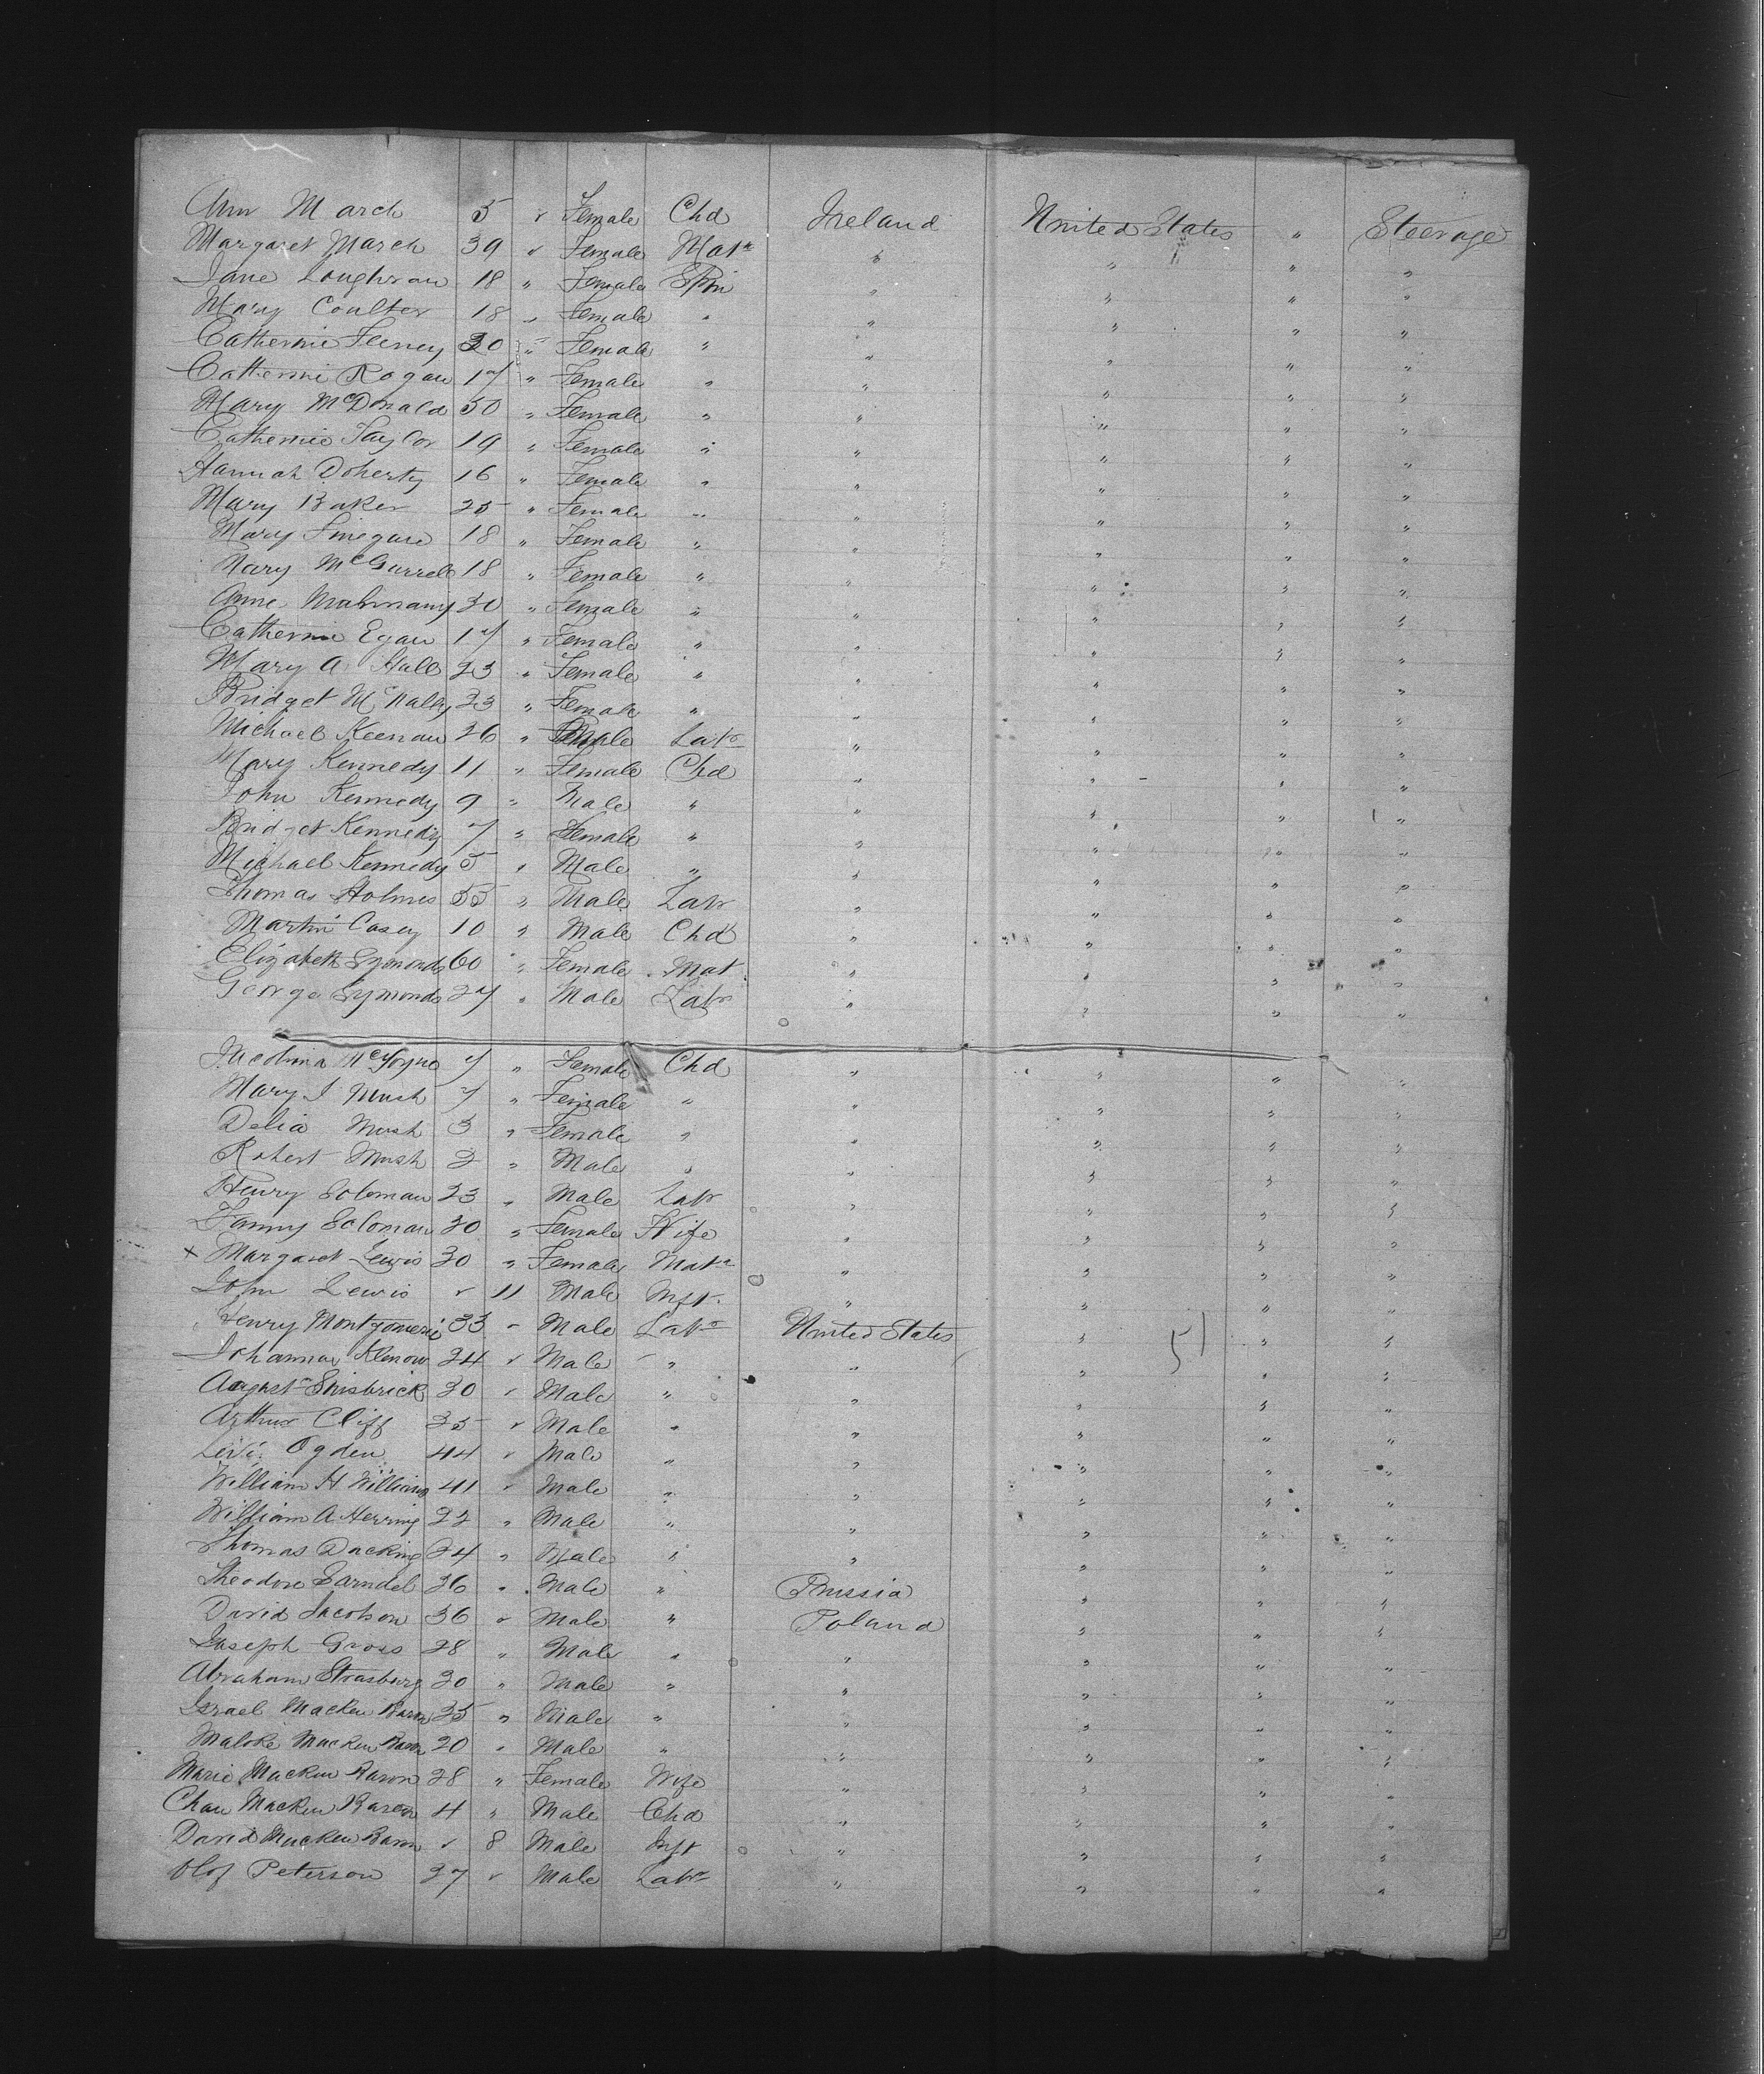 Ann March 5 " Female Chd Ireland United States " Steerage
Margaret March 39 " Female Matn " " " "
Jane Loughran 18 " Female Spin " " " "
Mary Coulter 18 " Female " " " " "
Catherine Feeney 30 " Female " " " " "
Catherine Rogan 17 " Female " " " " "
Mary McDonald 50 " Female " " " " "
Catherine Taylor 19 " Female " " " " "
Hannah Doherty 16 " Female " " " " "
Mary Baker 25 " Female " " " " "
Mary Finegan 18 " Female " " " " "
Mary McGurrell 18 " Female " " " " "
Anne 30 " Female " " " " "
Catherine Egan 17 " Female " " " " "
Mary A Hall 23 " Female " " " " "
Bridget McNally 23 " Female " " " " "
Michael Keenan 26 " Male Labr " " " "
Mary Kennedy 11 " Female Chd " " " "
John Kennedy 9 " Male " " " " "
Bridget Kennedy 7 " Female " " " " "
Michael Kennedy 5 " Male " " " " "
Thomas Holmes 55 " Male Labr " " " "
Martin Casey 10 " Male Chd " " " "
Elizabeth Symonds 60 " Female Mat " " " "
George Symonds 27 " Male Labr " " " "
7 " Female Chd " " " "
Mary J Mush 7 " Female " " " " "
Delia Mush 3 " Female " " " " "
Robert Mush 2 " Male " " " " "
Henry Soloman 23 " Male Labr " " " "
Fanny Soloman 20 " Female Wife " " " "
x Margaret Lewis 30 " Female Matn " " " "
John Lewis " 11 Male Inft " " " "
Henry Montgomerie 33 " Male Labr United States " " "
51
Johannas Klenow 24 " Male " " " " "
August 30 " Male " " " " "
Arthur Cliff 35 " Male " " " " "
Levi Ogden 44 " Male " " " " "
William H Williams 41 " Male " " " " "
William A Herring 22 " Male " " " " "
Thomas Dacking 24 " Male " " " " "
Theodore Sarndel 36 " Male " Prussia " " "
David Jacobson 36 " Male " Poland " " "
Joseph Gross 28 " Male " " " " "
Abraham Strasburg 30 " Male " " " " "
Israel Macken Baron 25 " Male " " " " "
Maloke Macken Baron 20 " Male " " " " "
Marie Macken Baron 28 " Female Wife " " " "
Chan Macken Baron 4 " Male Chd " " " "
David Macken Baron " 8 Male Inft " " " "
Olof Peterson 27 " Male Labr " " " "